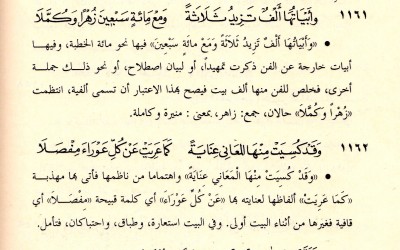 ١١٦١ وَأَبْيَاتُهَا أَلْفٌ تَزِيدُ ثَلَاثَةً وَمَعْ مِائَةٍ سَبْعِينَ زُهْرًا وَكُمَّلَا
• «وَأَبْيَاتُهَا أَلْفٌ تَزِيدُ ثَلَاثَةً وَمَعْ مِائَةٍ سَبْعِينَ» فيها نحو مائة الخطبة، وفيها
أبيات خارجة عن الفن ذكرت تمهيداً، أو لبيان اصطلاح، أو نحو ذلك جملة
أخرى، فخلص للفن منها ألف بيت فيصح بهذا الاعتبار أن تسمى ألفية، انتظمت
«زُهْرًا وَكُمَّلَا» حالان، جمع: زاهر، بمعنى: منيرة وكاملة.
١١٦٢ وَقَدْ كُسِيَتْ مِنْهَا المَعَانِي عِنَايَةً كَمَا عَرِيَتْ عَنْ كُلِّ عَوْرَاءَ مِفْصَلَا
• «وَقَدْ كُسِيَتْ مِنْهَا الْمَعَانِي عِنَايَةً» واهتماما من ناظمها فأتى بها مهذبة
«كَمَا عَرِيَتْ» ألفاظها لعنايته بها «عَنْ كُلِّ عَوْرَاءَ» أي كلمة قبيحة «مِفْصَلَا» أي
قافية فغيرها من أثناء البيت أولى. وفي البيت استعارة، وطباق، واحتباكان، فتأمل.